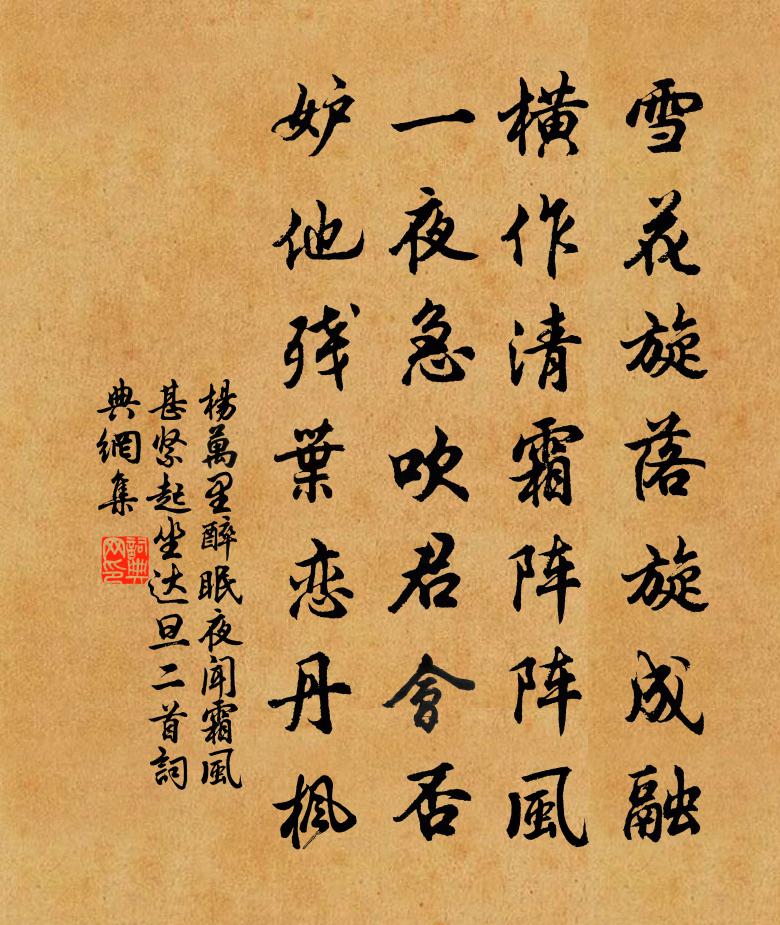 雪花旋落旋成融
横作清霜阵阵風
一夜急吹君會否
妒他残葉恋丹楓
楊萬里醉眠夜闻霜風
甚紧起坐达旦二首詞
典網集
詞典
网印